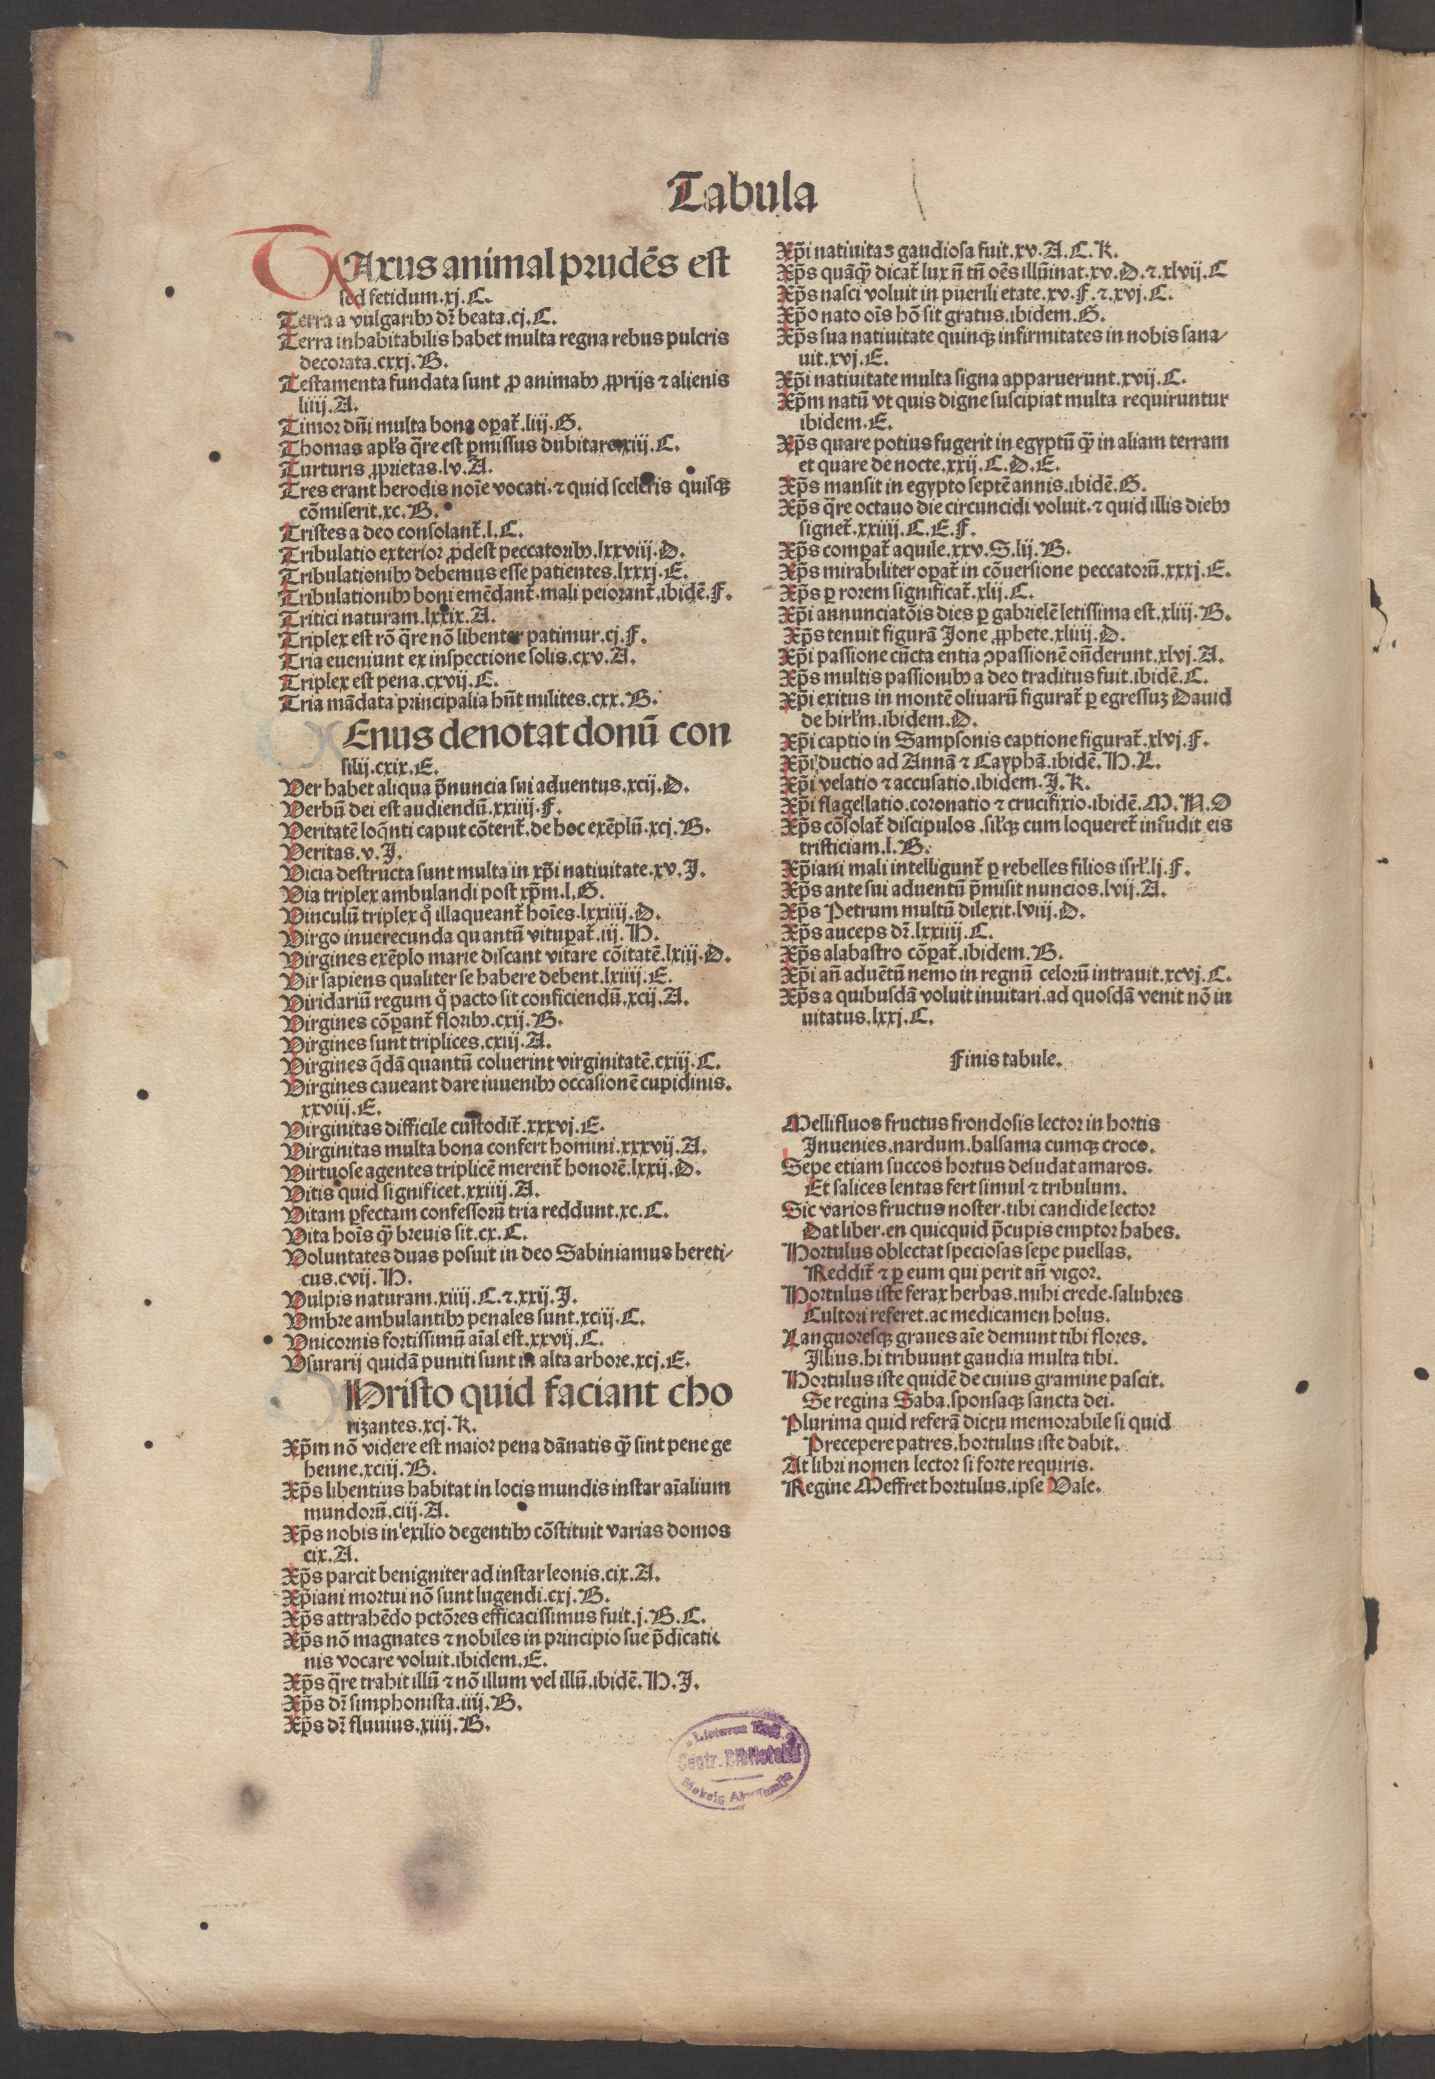 Tabula
TAxus animal prudēs est
sed fetidum.xj.C.
Terra a vulgaribꝰ dr̄ beata.cj.C.
Terra inhabitabilis habet multa regna rebus pulcris
decorata.cxxj.B.
Testamenta fundata sunt ꝓ animabꝰ ꝓprijs ⁊ alienis
liiij.A.
Timor dn̄i multa bona opat̄.liij.G.
Thomas apl's q̄re est ꝑmissus dubitare.xiij.C.
Turturis ꝓprietas.lv.A.
Tres erant herodis noīe vocati.⁊ quid sceleris quisqꝫ
cōmiserit.xc.B.
Tristes a deo consolant̄.l.C.
Tribulatio exterior ꝓdest peccatoribꝰ.lxxviij.D.
Tribulationibꝰ debemus esse patientes.lxxxj.E.
Tribulationibꝰ boni emēdant̄.mali peiorant̄.ibidē.F.
Tritici naturam.lxxix.A.
Triplex est rō q̄re nō libenter patimur.cj.F.
Tria eueniunt ex inspectione solis.cxv.A.
Triplex est pena.cxvij.E.
Tria mādata principalia hn̄t milites.cxx.B.
Enus denotat donū con
silij.cxix.E.
Ver habet aliqua p̄nuncia sui aduentus.xcij.D.
Verbū dei est audiendū.xxiiij.F.
Veritatē loq̄nti caput cōterit̄.de hoc exēplū.xcj.B.
Veritas.v.J.
Vicia destructa sunt multa in xp̄i natiuitate.xv.J.
Via triplex ambulandi post xp̄m.l.G.
Vinculū triplex qͦ illaqueant̄ hoīes.lxxiiij.D.
Virgo inuerecunda quantū vituꝑat̄.iij.H.
Virgines exēplo marie discant vitare cōitatē.lxiij.D.
Vir sapiens qualiter se habere debent.lxiiij.E.
Viridariū regum qͦ pacto sit conficiendū.xcij.A.
Virgines cōꝑant̄ floribꝰ.cxij.B.
Virgines sunt triplices.cxiij.A.
Virgines q̄dā quantū coluerint virginitatē.cxiij.C.
Virgines caueant dare iuuenibꝰ occasionē cupidinis.
xxviij.E.
Virginitas difficile custodit̄.xxxvj.E.
Virginitas multa bona confert homini.xxxvij.A.
Virtuose agentes triplicē merent̄ honorē.lxxij.D.
Vitis quid significet.xxiiij.A.
Vitam ꝑfectam confessorū tria reddunt.xc.C.
Vita hoīs qꝫ̄ breuis sit.cx.C.
Voluntates duas posuit in deo Sabiniamus hereti-
cus.cvij.H.
Vulpis naturam.xiiij.C.⁊.xxij.J.
Vmbre ambulantibꝰ penales sunt.xciij.C.
Vnicornis fortissimū aīal est.xxvij.C.
Vsurarij quidā puniti sunt in alta arbore.xcj.E.
Hristo quid faciant cho
rizantes.xcj.K.
Xp̄m nō videre est maior pena dānatis qꝫ̄ sint pene ge
henne.xciij.B.
Xp̄s libentius habitat in locis mundis instar aīalium
mundorū.ciij.A.
Xp̄s nobis in exilio degentibꝰ cōstituit varias domos
cix.A.
Xp̄s parcit benigniter ad instar leonis.cix.A.
Xp̄iani mortui nō sunt lugendi.cxj.B.
Xp̄s attrahēdo pctōres efficacissimus fuit.j.B.C.
Xp̄s nō magnates ⁊ nobiles in principio sue p̄dicatio
nis vocare voluit.ibidem.E.
Xp̄s q̄re trahit illū ⁊ nō illum vel illū.ibidē.H.J.
Xp̄s dr̄ simphonista.iiij.B.
Xp̄s dr̄ fluuius.xiiij.B.
Xp̄i natiuitas gaudiosa fuit.xv.A.C.K.
Xp̄s quāqꝫ̄ dicat̄ lux n̄ tn̄ oēs illūinat.xv.D.⁊.xlvij.C
Xp̄s nasci voluit in puerili etate.xv.F.⁊.xvj.C.
Xp̄o nato oīs hō sit gratus.ibidem.G.
Xp̄s sua natiuitate quinqꝫ infirmitates in nobis sana-
uit.xvj.E.
Xp̄i natiuitate multa signa apparuerunt.xvij.C.
Xp̄m natū vt quis digne suscipiat multa requiruntur
ibidem.E.
Xp̄s quare potius fugerit in egyptū qꝫ̄ in aliam terram
et quare de nocte.xxij.C.D.E.
Xp̄s mansit in egypto septē annis.ibidē.G.
Xp̄s q̄re octauo die circuncidi voluit.⁊ quid illis diebꝰ
signet̄.xxiiij.C.E.F.
Xp̄s compat̄ aquile.xxv.S.lij.B.
Xp̄s mirabiliter opat̄ in cōuersione peccatorū.xxxj.E.
Xp̄s ꝑ rorem significat̄.xlij.C.
Xp̄i annunciatōis dies ꝑ gabrielē letissima est.xliij.B.
Xp̄s tenuit figurā Jone ꝓphete.xliiij.D.
Xp̄i passione cūcta entia ꝯpassionē on̄derunt.xlvj.A.
Xp̄s multis passionibꝰ a deo traditus fuit.ibidē.C.
Xp̄i exitus in montē oliuarū figurat̄ ꝑ egressuꝫ Dauid
de hirl'm.ibidem.D.
Xp̄i captio in Sampsonis captione figurat̄.xlvj.F.
Xp̄i ductio ad Annā ⁊ Cayphā.ibidē.H.L.
Xp̄i velatio ⁊ accusatio.ibidem.J.K.
Xp̄i flagellatio.coronatio ⁊ crucifixio.ibidē.M.N.O
Xp̄s cōsolat̄ discipulos.sil'qꝫ cum loqueret̄ infudit eis
tristiciam.l.B.
Xp̄iani mali intelligunt̄ ꝑ rebelles filios isrl'.lj.F.
Xp̄s ante sui aduentū p̄misit nuncios.lvij.A.
Xp̄s Petrum multū dilexit.lviij.D.
Xp̄s auceps dr̄.lxxiiij.C.
Xp̄s alabastro cōꝑat̄.ibidem.B.
Xp̄i an̄ aduētū nemo in regnū celorū intrauit.xcvj.C.
Xp̄s a quibusdā voluit inuitari.ad quosdā venit nō in
uitatus.lxxj.C.
Finis tabule.
Mellifluos fructus frondosis lector in hortis
Inuenies.nardum.balsama cumqꝫ croco.
Sepe etiam succos hortus desudat amaros.
Et salices lentas fert simul ⁊ tribulum.
Sic varios fructus noster.tibi candide lector
Dat liber.en quicquid p̄cupis emptor habes.
Hortulus oblectat speciosas sepe puellas.
Reddit̄ ⁊ ꝑ eum qui perit an̄ vigor.
Hortulus iste ferax herbas.mihi crede.salubres
Cultori referet.ac medicamen holus.
Languoresqꝫ graues aīe demunt tibi flores.
Illius.hi tribuunt gaudia multa tibi.
Hortulus iste quidē de cuius gramine pascit.
Se regina Saba.sponsaqꝫ sancta dei.
Plurima quid referā dictu memorabile si quid
Precepere patres.hortulus iste dabit.
At libri nomen lector si forte requiris.
Regine Meffret hortulus.ipse Vale.
Lietuvos
Centr. Biblioteka
Mokslų Akademija